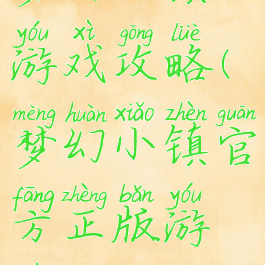 yóu xì gōng lüè
游戏攻略(
mèng huàn xiǎo zhèn guān
梦幻小镇官
fāng zhèng bǎn yóu
方正版游